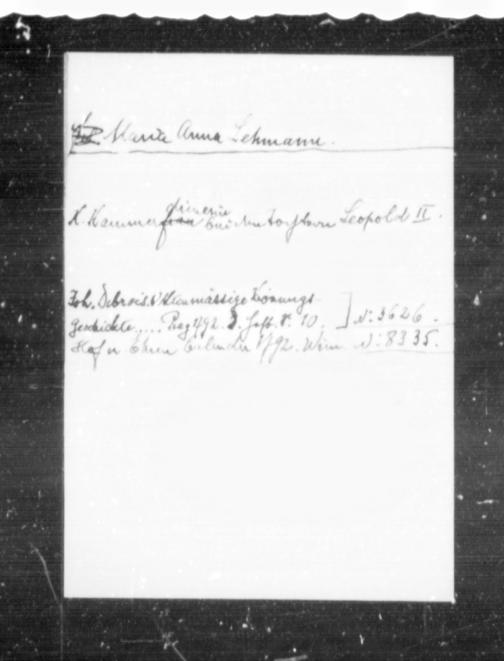 Maria Anna Lehmann.
K. Kammerdienerin bei den Töchtern Leopold II.
Joh. Debrois. Aktenmässige Krönungs-
geschichte .... Prag 1792. 2. Heft. S. 10. ] N: 3626.
Hof u Ehren Calender 1792. Wien N: 8335.